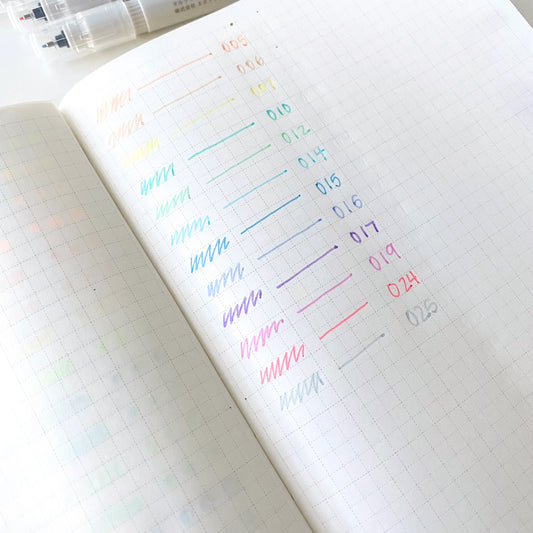 005
006
007
010
012
014
015
016
017
019
024
025